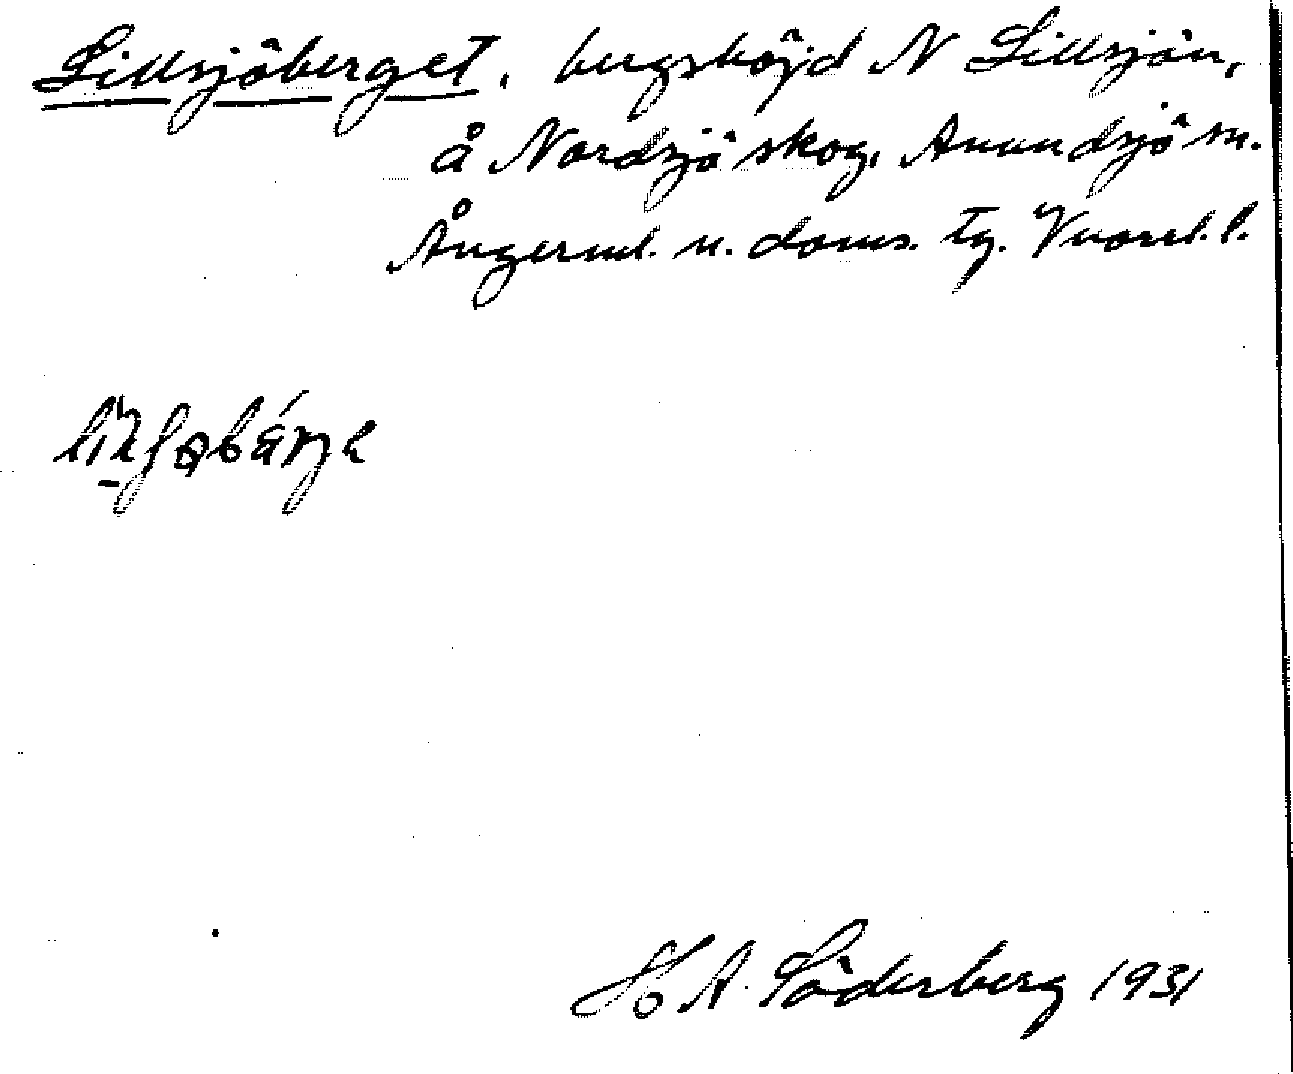 Lillsjöberget, bergshöjd N Lillsjön,
å Nordsjö skog, Anundsjö sn.
Ångerml. n. doms. tg.
H A. Söderberg 1931